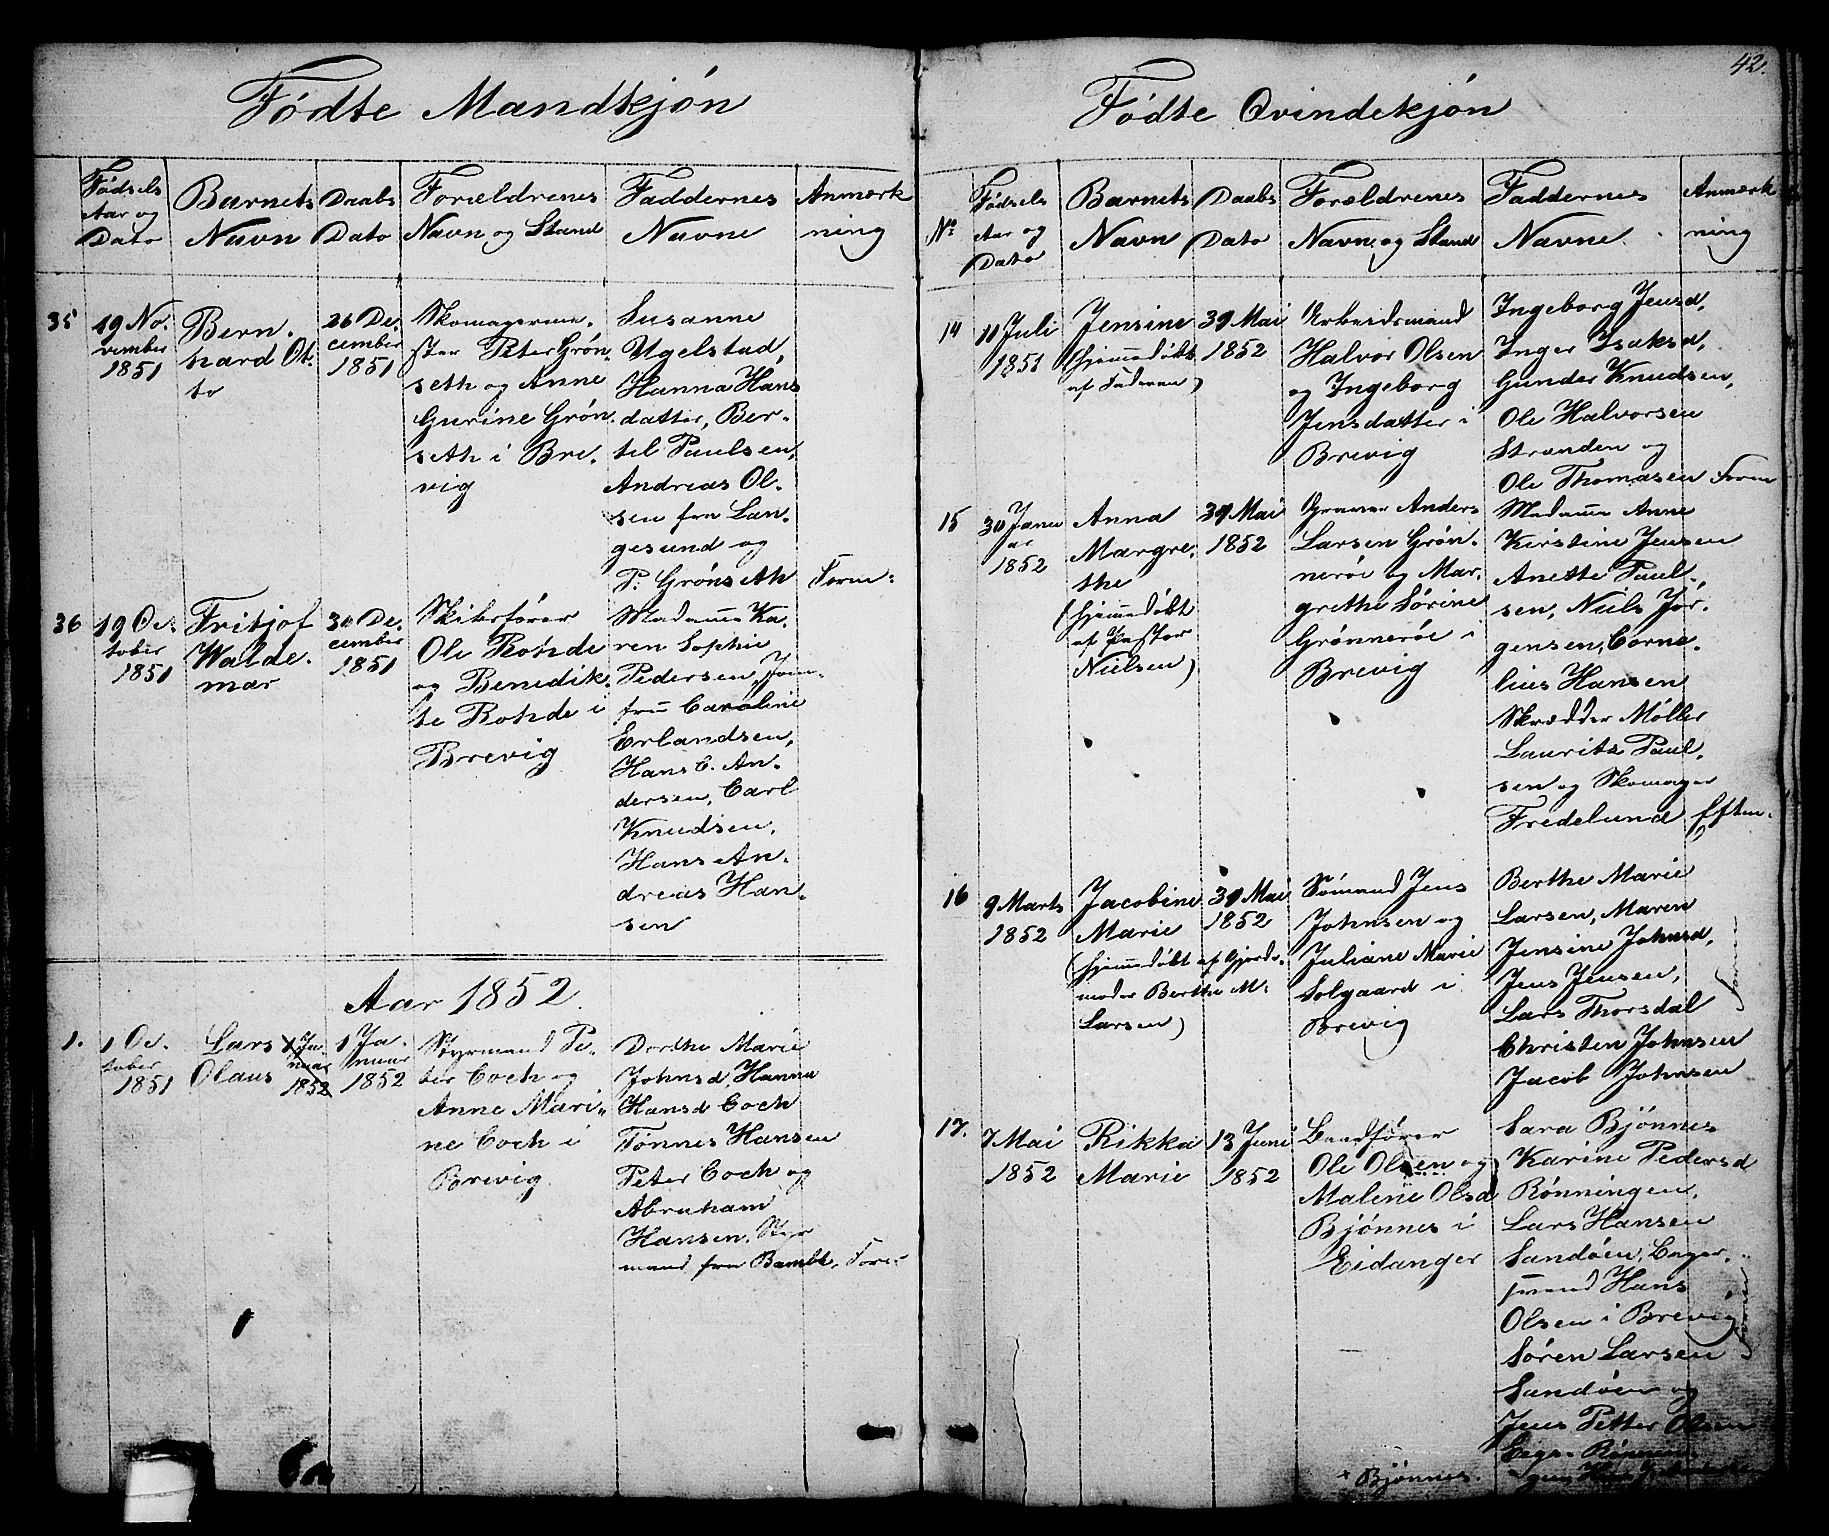 42.
Fødte Mandkjøn
Fødselsaar og Dato
Barnets Navn
Daabs Dato
Forældrenes Navn og Stand
Faddernes Navne
Anmærkning
35
19 No-
vember
1851
Bern-
hard Ot-
to
26 De-
cember
1851
Skomagerme-
ster Peter Grøn
seth og Anne
Gurine Grøn
seth i Bre-
vig
Susanne
Ugelstad,
Hanna Hans
datter, Ber-
tel Paulsen,
Andreas Ol-
sen fra Lan-
gesund og
P. Grønseth
Form-
36
19 Oc-
tober
1851
Fritjof
Walde-
mar
30 De-
cember
1851
Skibsfører
Ole Rohde
og Benedik-
te Rohde i
Brevig
Madame Ka-
ren Sophie
Pedersen, Jom-
fru Caroline
Erlandsen,
Hans C. An-
dersen, Carl
Knudsen,
Hans An-
dreas Han-
sen
Aar 1852.
1.
1 Oc-
tober
1851
Lars
Olaus
1 Ja-
nuar
1852
1 Ja-
nuar
1852
Styrmand Pe-
ter Coch og
Anne Mari-
ne Coch i
Brevig.
Dorthe Marie
Johnsd, Hanna
Hansd Coch
Tønnes Hansen
Peter Coch og
Abraham
Hansen, Styr
mand fra Bamble, Form-
Fødte Qvindekjøn
No
Fødsels
Aar og
Dato
Barnets
Navn
Daabs
Dato
Forældrenes
Navn og Stand
Faddernes
Navne.
Anmærk
ning
14
11 Juli
1851
Jensine
(hjemmedøbt
af Faderen)
31 Mai
1852
Arbeidsmand
Halvor Olsen
og Ingeborg
Jensdatter i
Brevig
Ingeborg Jensd,
Inger Isaksd,
Gunder Knudsen,
Ole Halvorsen
Stranden og
Ole Thomasen
Form
15
30 Janu
ar
1852
Anna
Margre-
the
(hjemmedøbt
af Pastor
Nielsen)
31 Mai
1852
Anders
Larsen Grøn-
nerøe og Mar-
grethe Sørine
Grønnerøe i
Brevig
Madame Anne
Kirstine Jensen
Anette Paul-
sen, Niels Jør-
gensen, Corne-
lius Hansen
Skrædder Møller
Laurits Paul-
sen og Skomager
Fredelund
Eftm-
16
9 Marts
1852
Jacobine
Marie
(hjemmedøbt af Gjorde-
moder Berthe M.
Larsen)
31 Mai
1852
Sømand Jens
Johnsen og
Juliane Marie
Solgaard i
Brevig
Berthe Marie
Larsen, Maren
Jensine Johnsd,
Jens Jensen,
Lars Thorsdal
Christen Johnsen
Jacob Johnsen
Form-
17.
7 Mai
1852
Rikka
Marie
13 Juni
1852
Ole Olsen og
Malene Olsd
Bjønnes i
Eidanger
Sara Bjønnes
Karine Pedersd
Rønningen,
Lars Hansen
Sandøen,
Hans
Olsen i Brevig
Søren Larsen
Sandøen og
Jens Petter Olsen
+ Bjønnes.